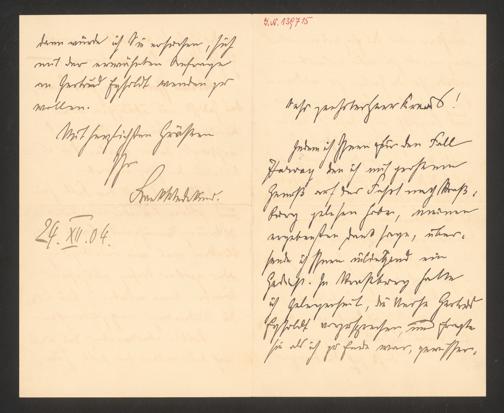 J.N. 139715
Sehr geehrter Herr Kraus!
Indem ich Ihnen für den Fall
den ich mit grossem
Genuß auf der Fahrt nach Straß-
burg gelesen habe, meinen
ergebensten Dank sage, über-
sende ich Ihnen ein
Gedicht. In Straßburg hatte
ich Gelegenheit, die Verse Gertrud
Eysoldt vorzusprechen, und fragte
sie als ich zu Ende war,
dann würde ich Sie ersuchen, sich
mit der erwähnten Anfrage
an Gertrud Eysoldt wenden zu
wollen.
Mit herzlichsten Grüßen
Ihr
Frank Wedekind.
24. XII. 04.